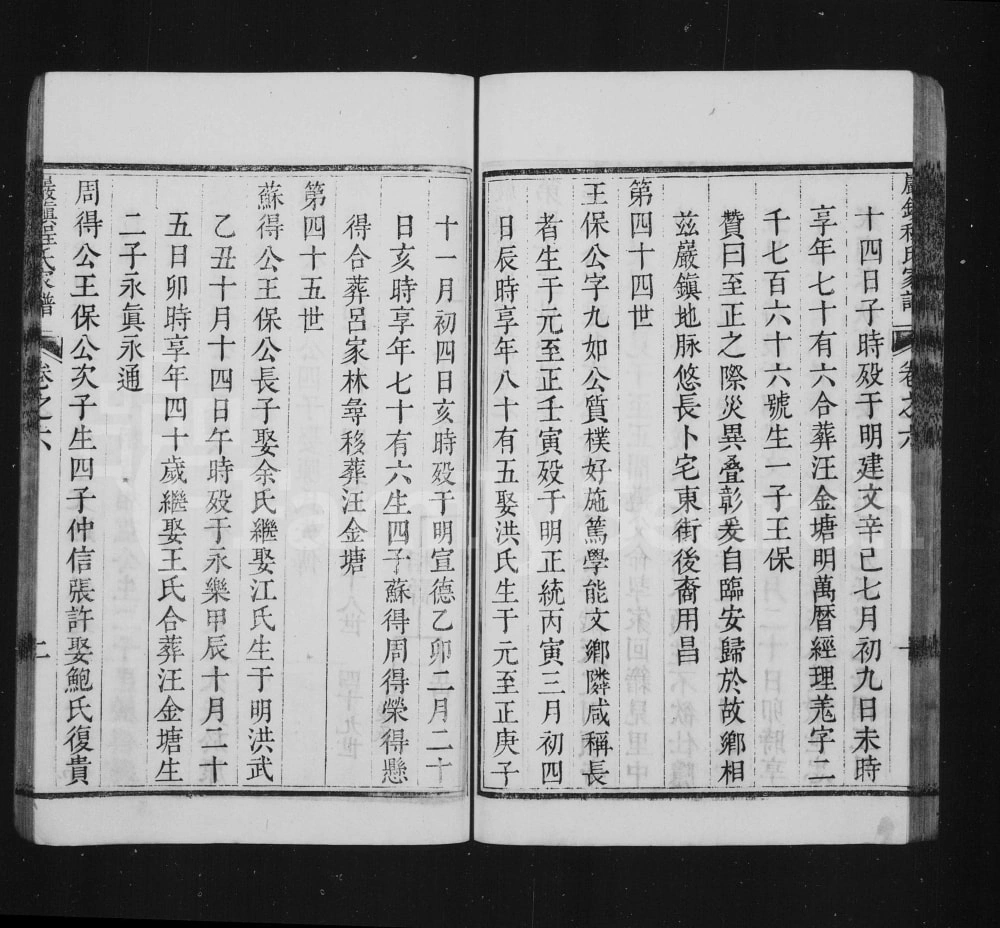 巖鎮程氏家譜 卷之六 十
十四日子時殁于明建文辛巳七月初九日未時
享年七十有六合葬汪金塘明萬曆經理羗字二
千七百六十六號生一子王保
贊曰至正之際災異叠彰爰自臨安歸於故鄉相
茲巖鎮地脉悠長卜宅東街後裔用昌
第四十四世
王保公字九如公質樸好施篤學能文鄉隣咸稱長
者生于元至正壬寅殁于明正統丙寅三月初四
日辰時享年八十有五娶洪氏生于元至正庚子
十一月初四日亥時殁于明宣德乙卯二月二十
日亥時享年七十有六生四子蘇得周得榮得懸
得合葬呂家林尋移葬汪金塘
第四十五世
蘇得公王保公長子娶余氏繼娶江氏生于明洪武
乙丑十月十四日午時殁于永樂甲辰十月二十
五日卯時享年四十歲繼娶王氏合葬汪金塘生
二子永眞永通
周得公王保公次子生四子仲信張許娶鮑氏復貴
巖鎮程氏家譜 卷之六